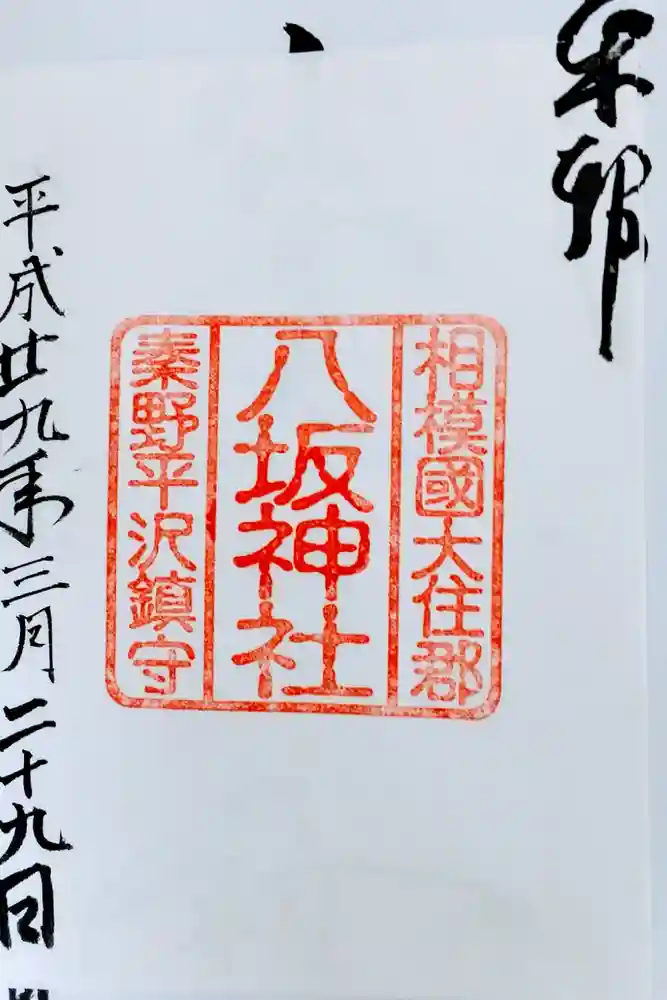 奉拝
相模國大住郡
八坂神社
秦野平沢鎮守
平成廿九年三月二十九日